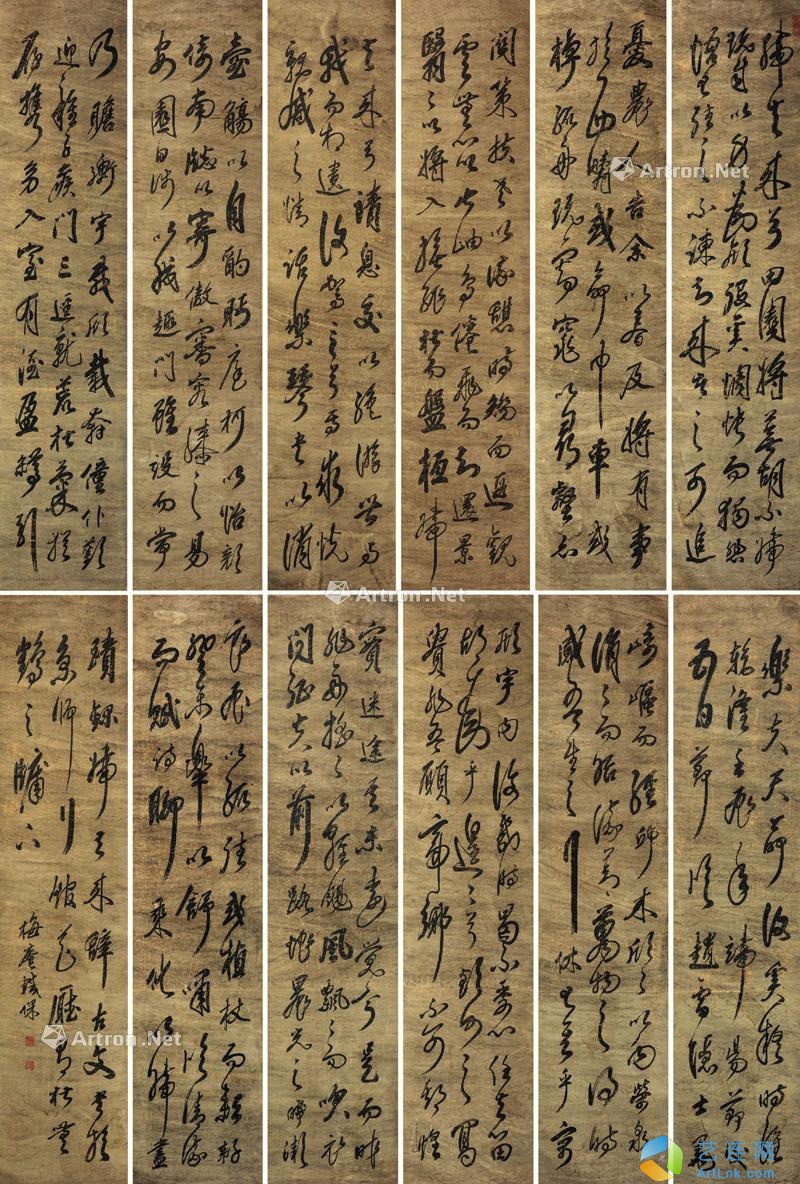 歸去來兮田園將蕪胡不歸
既自以心為形役奚惆悵而獨悲
悟已往之不諫知來者之可追
憂農人告余以春及將有事
於西疇或命巾車或
棹孤舟既窈窕以尋壑亦
關策扶老以流憩時矯而遐觀
雲無心以出岫鳥倦飛而知還景
翳翳以將入撫孤松而盤桓歸
去來兮請息交以絕游世與
我而相遺復駕言兮焉求悅
親戚之情話樂琴書以消
壺觴以自酌眄庭柯以怡顏
倚南牕以寄傲審容膝之易
安園日涉以成趣門雖設而常
乃瞻衡宇載欣載奔僮仆歡
迎稚子候門三逕就荒松菊猶
存攜幼入室有酒盈樽引
樂夫天命復奚疑時維
乾隆壬年端陽前
五日節臨趙雪
崎嶇而經邱木欣欣以向榮泉
涓涓而始流善萬物之得時
感吾生之行休已矣乎寓
形宇內復幾時曷不委心任去留
胡為乎遑遑兮欲何之富
貴非吾願帝鄉不可期
實迷途其未遠覺今是而昨
非舟搖搖以輕颺風飄飄而吹衣
問征夫以前路恨晨光之熹微
良辰以孤往或植杖而耘耔
登東皋以舒嘯臨清流
而賦詩聊乘化以歸盡
蹟錄歸去來辭古文書於
京師行館之松
鶴之牖下
梅庵鐵保
Artron.Net
Artron.Net
Artron.Net
Artron.Net
艺连网
ArtLnk.com